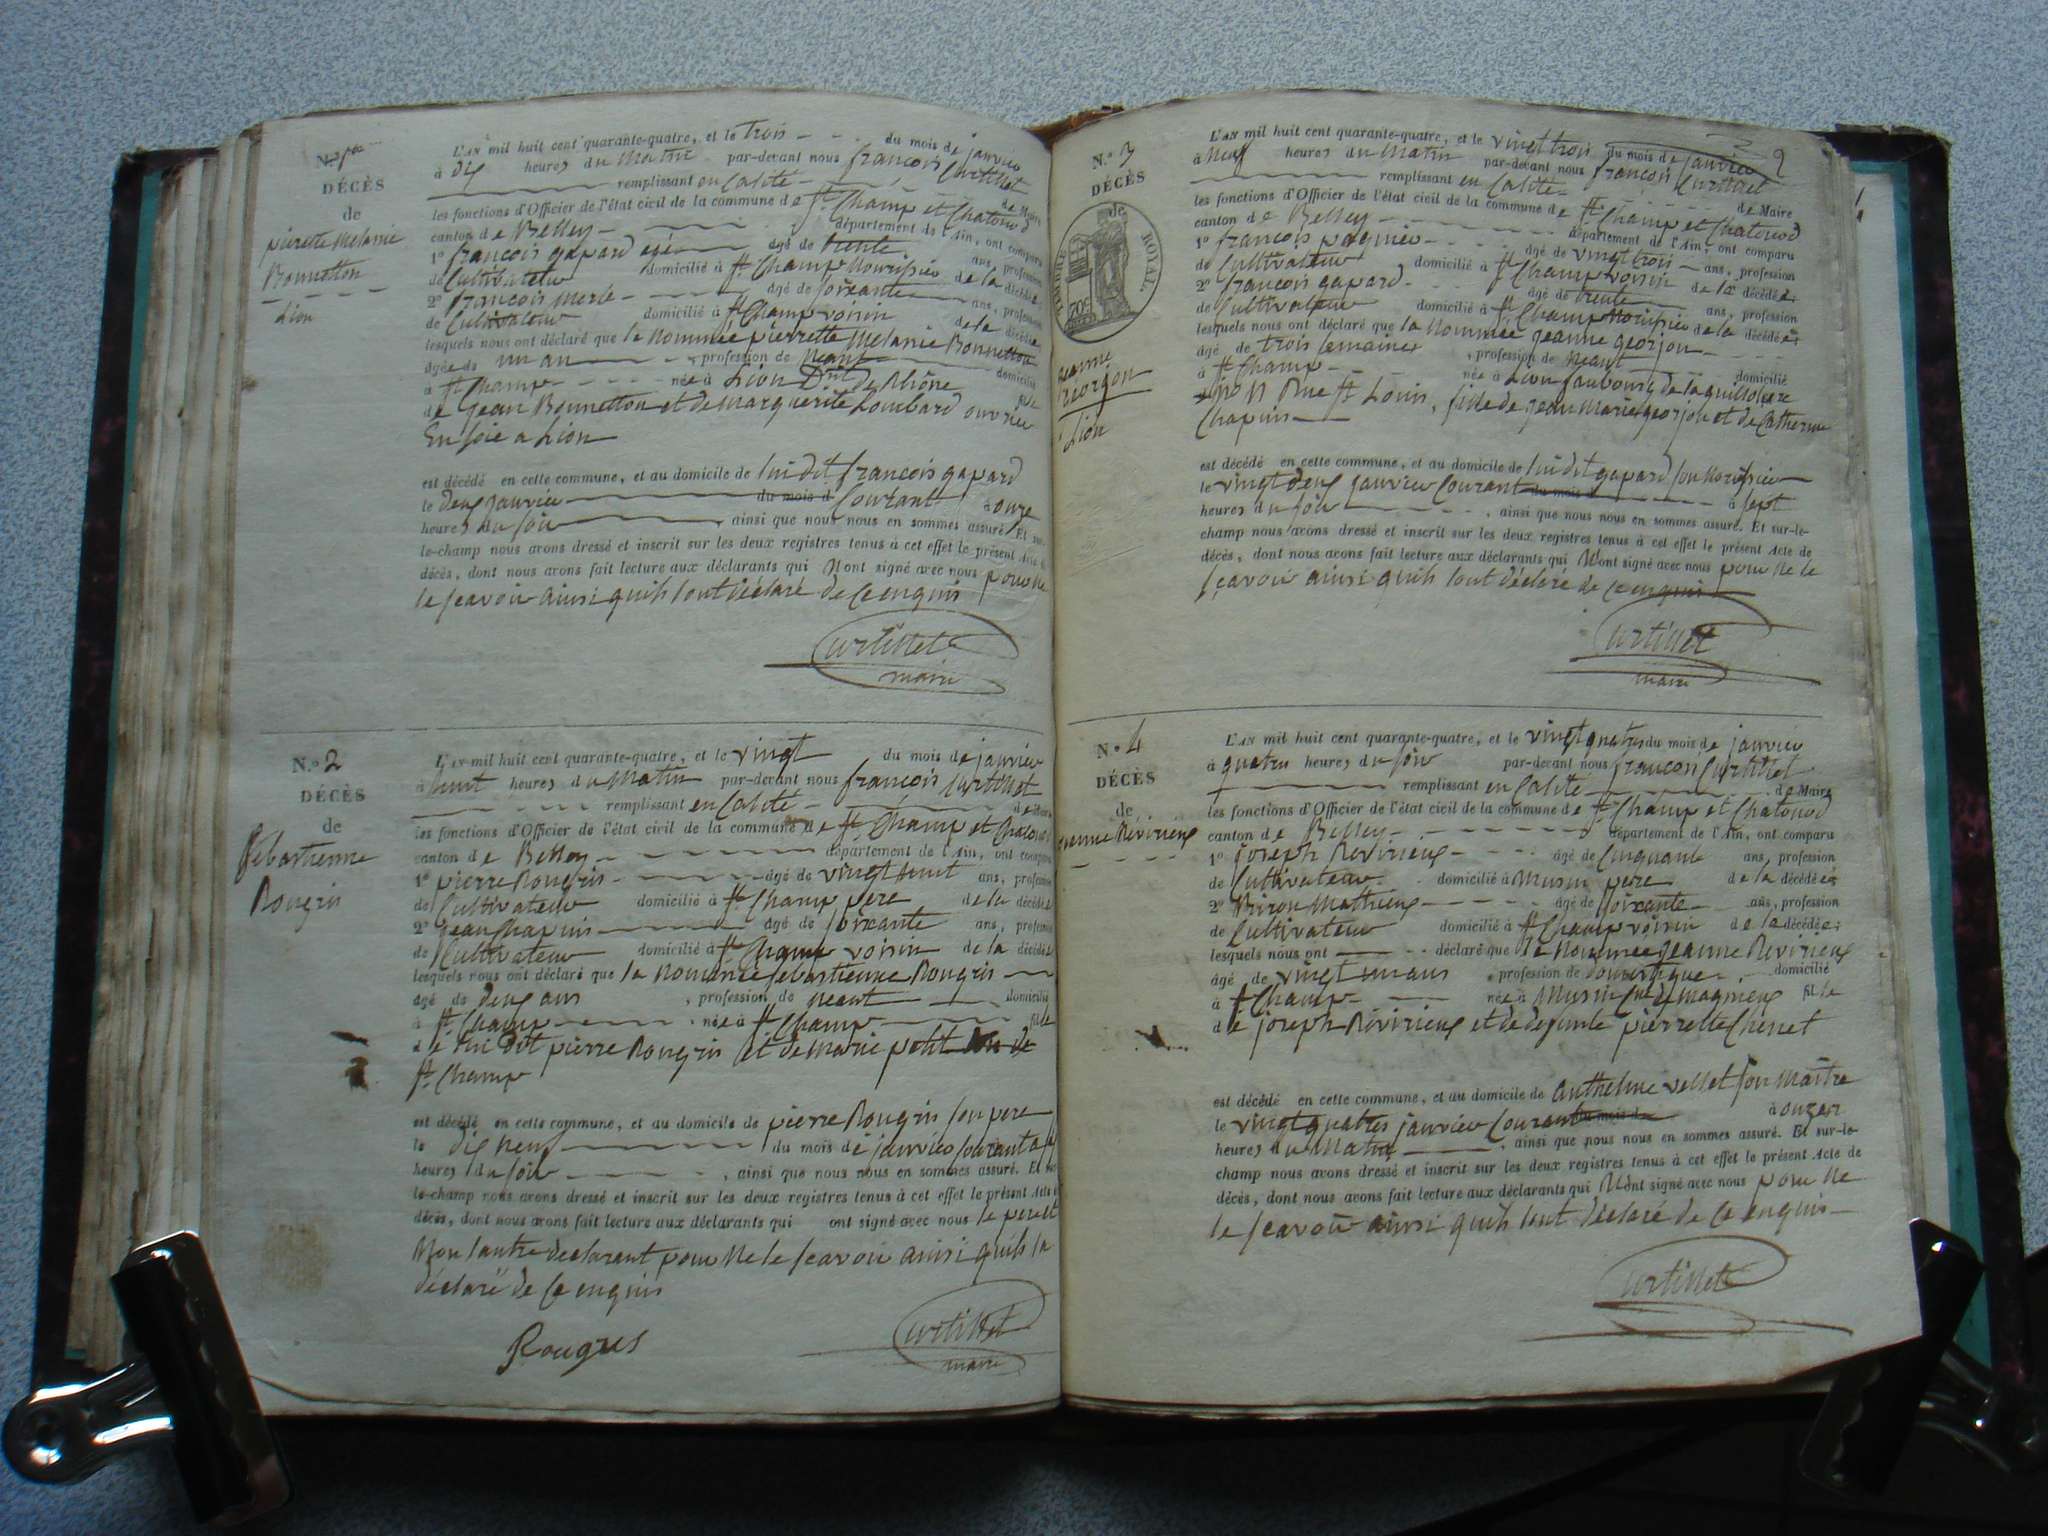 N.o 1er
DÉCÈS
de
pierette Melanie
Bonnetton
Lion
L'AN mil huit cent quarante-quatre, et le trois du mois de janvier
à dix heures du Matin par-devant nous françois Curtillet
remplissant en Calité de Maire
les fonctions d'Officier de l'état civil de la commune de St. Champ et Chatonod
canton de Belley département de l'Ain, ont comparu
1o françois gapard agé de trente ans, profession
de Cultivateur domicilié à St Champ Nourisier de la décédée
2o françois Merle agé de soixante ans, profession
de Cultivateur domicilié à St Champ voisin de la décédée
lesquels nous ont déclaré que la Nommée pierrette Melanie Bonnetton
agée de un an profession de Neant domicilié
à St Champ née à Lion Dmt de Rhône fille
de jean Bonnetton et de Marguerite Lombard ouvrier
En soie a Lion
est décédé en cette commune, et au domicile de lui dit françois gapard
le deux janvier du mois d Courant à onze
heures du soir, ainsi que nous nous en sommes assuré. Et sur-
le-champ nous avons dressé et inscrit sur les deux registres tenus à cet effet le présent Acte de
décès, dont nous avons fait lecture aux déclarants qui Nont signé avec nous pour ne
le scavoir ainsi quils lont déclaré de ce enquis
Curtillet
maire
N.o 2
DÉCÈS
de
Sebastienne
Rougris
L'AN mil huit cent quarante-quatre, et le vingt du mois de janvier
à huit heures du Matin par-devant nous françois Curtillet
remplissant en Calité de Maire
les fonctions d'Officier de l'état civil de la commune de St Champ et Chatonod
canton de Belley département de l'Ain, ont comparu
1o pierre Rougris agé de vingt huit ans, profession
de Cultivateur domicilié à St Champ pere de la décédée
2o jean Chapuis agé de soixante ans, profession
de Cultivateur domicilié à St Champ voisin de la décédée
lesquels nous ont déclaré que la Nommée Sebastienne Rougris
agé de deux ans, profession de neant domicilié
à St Champ, née à St Champ fille
de lui dit pierre Rougris et de Marie petit
St. Champ
est décédé en cette commune, et au domicile de pierre Rougris son pere
le dix neuf du mois de janvier Courant a
heures du soir, ainsi que nous nous en sommes assuré. Et sur
le-champ nous avons dressé et inscrit sur les deux registres tenus à cet effet le présent Acte
décès, dont nous avons fait lecture aux déclarants qui ont signé avec nous le pere et
Non lautre declarent pour Ne le scavoir ainsi quils la
déclaré de ce enquis
Rougris
Curtillet
maire
2
N.o 3
DÉCÈS
de
TIMBRE ROYAL
70c
jeanne
Géorjon
Lion
L'AN mil huit cent quarante-quatre, et le vingt trois du mois de janvier
à Neuf heures du Matin par-devant nous françois Curtillet
remplissant en Calité de Maire
les fonctions d'Officier de l'état civil de la commune de St Champ et Chatonod
canton de Belley département de l'Ain, ont comparu
1o françois pagnier agé de vingt trois ans, profession
de Cultivateur domicilié à St Champ voisin de la décédée
2o françois gapard agé de trente ans, profession
de Cultivateur domicilié à St Champ Nourisier de la décédée
lesquels nous ont déclaré que la Nommée jeanne georjon
agé de trois semaines, profession de Neant domicilié
à St Champ née à Lion faubourg de la guillotiere
Rue St Louis, fille de jean Marie georjon et de Catherine
Chapuis
est décédé en cette commune, et au domicile de lui dit gapard son Nourisier
le vingt deux janvier Courant du mois d à sept
heures du soir, ainsi que nous nous en sommes assuré. Et sur-le-
champ nous avons dressé et inscrit sur les deux registres tenus à cet effet le présent Acte de
décès, dont nous avons fait lecture aux déclarants qui Nont signé avec nous pour Ne le
scavoir ainsi quils lont déclaré de ce enquis
Curtillet
maire
N.o 4
DÉCÈS
de
jeanne Revirieux
L'AN mil huit cent quarante-quatre, et le vingt quatre du mois de janvier
à quatre heures du soir par-devant nous françois Curtillet
remplissant en Calité de Maire
les fonctions d'Officier de l'état civil de la commune de St Champ et Chatonod
canton de Belley département de l'Ain, ont comparu
1o joseph Revirieux agé de Cinquante ans, profession
de Cultivateur domicilié à Musin pere de la décédée
2o Biron Mathieux agé de soixante ans, profession
de Cultivateur domicilié à St Champ voisin de la décédée
lesquels nous ont déclaré que la Nommée jeanne Revirieux
agé de vingt un ans, profession de domestique domicilié
à St Champ née à Musin Cne de Magnieux fille
de joseph Révirieux et de defunte pierrette Chenet
est décédé en cette commune, et au domicile de anthelme vellet son Maître
le vingt quatre janvier Courant du mois de à onze
heures du Matin, ainsi que nous nous en sommes assuré. Et sur-le-
champ nous avons dressé et inscrit sur les deux registres tenus à cet effet le présent Acte de
décès, dont nous avons fait lecture aux déclarants qui Nont signé avec nous pour Ne
le scavoir ainsi quils lont déclaré de ce enquis
Curtillet